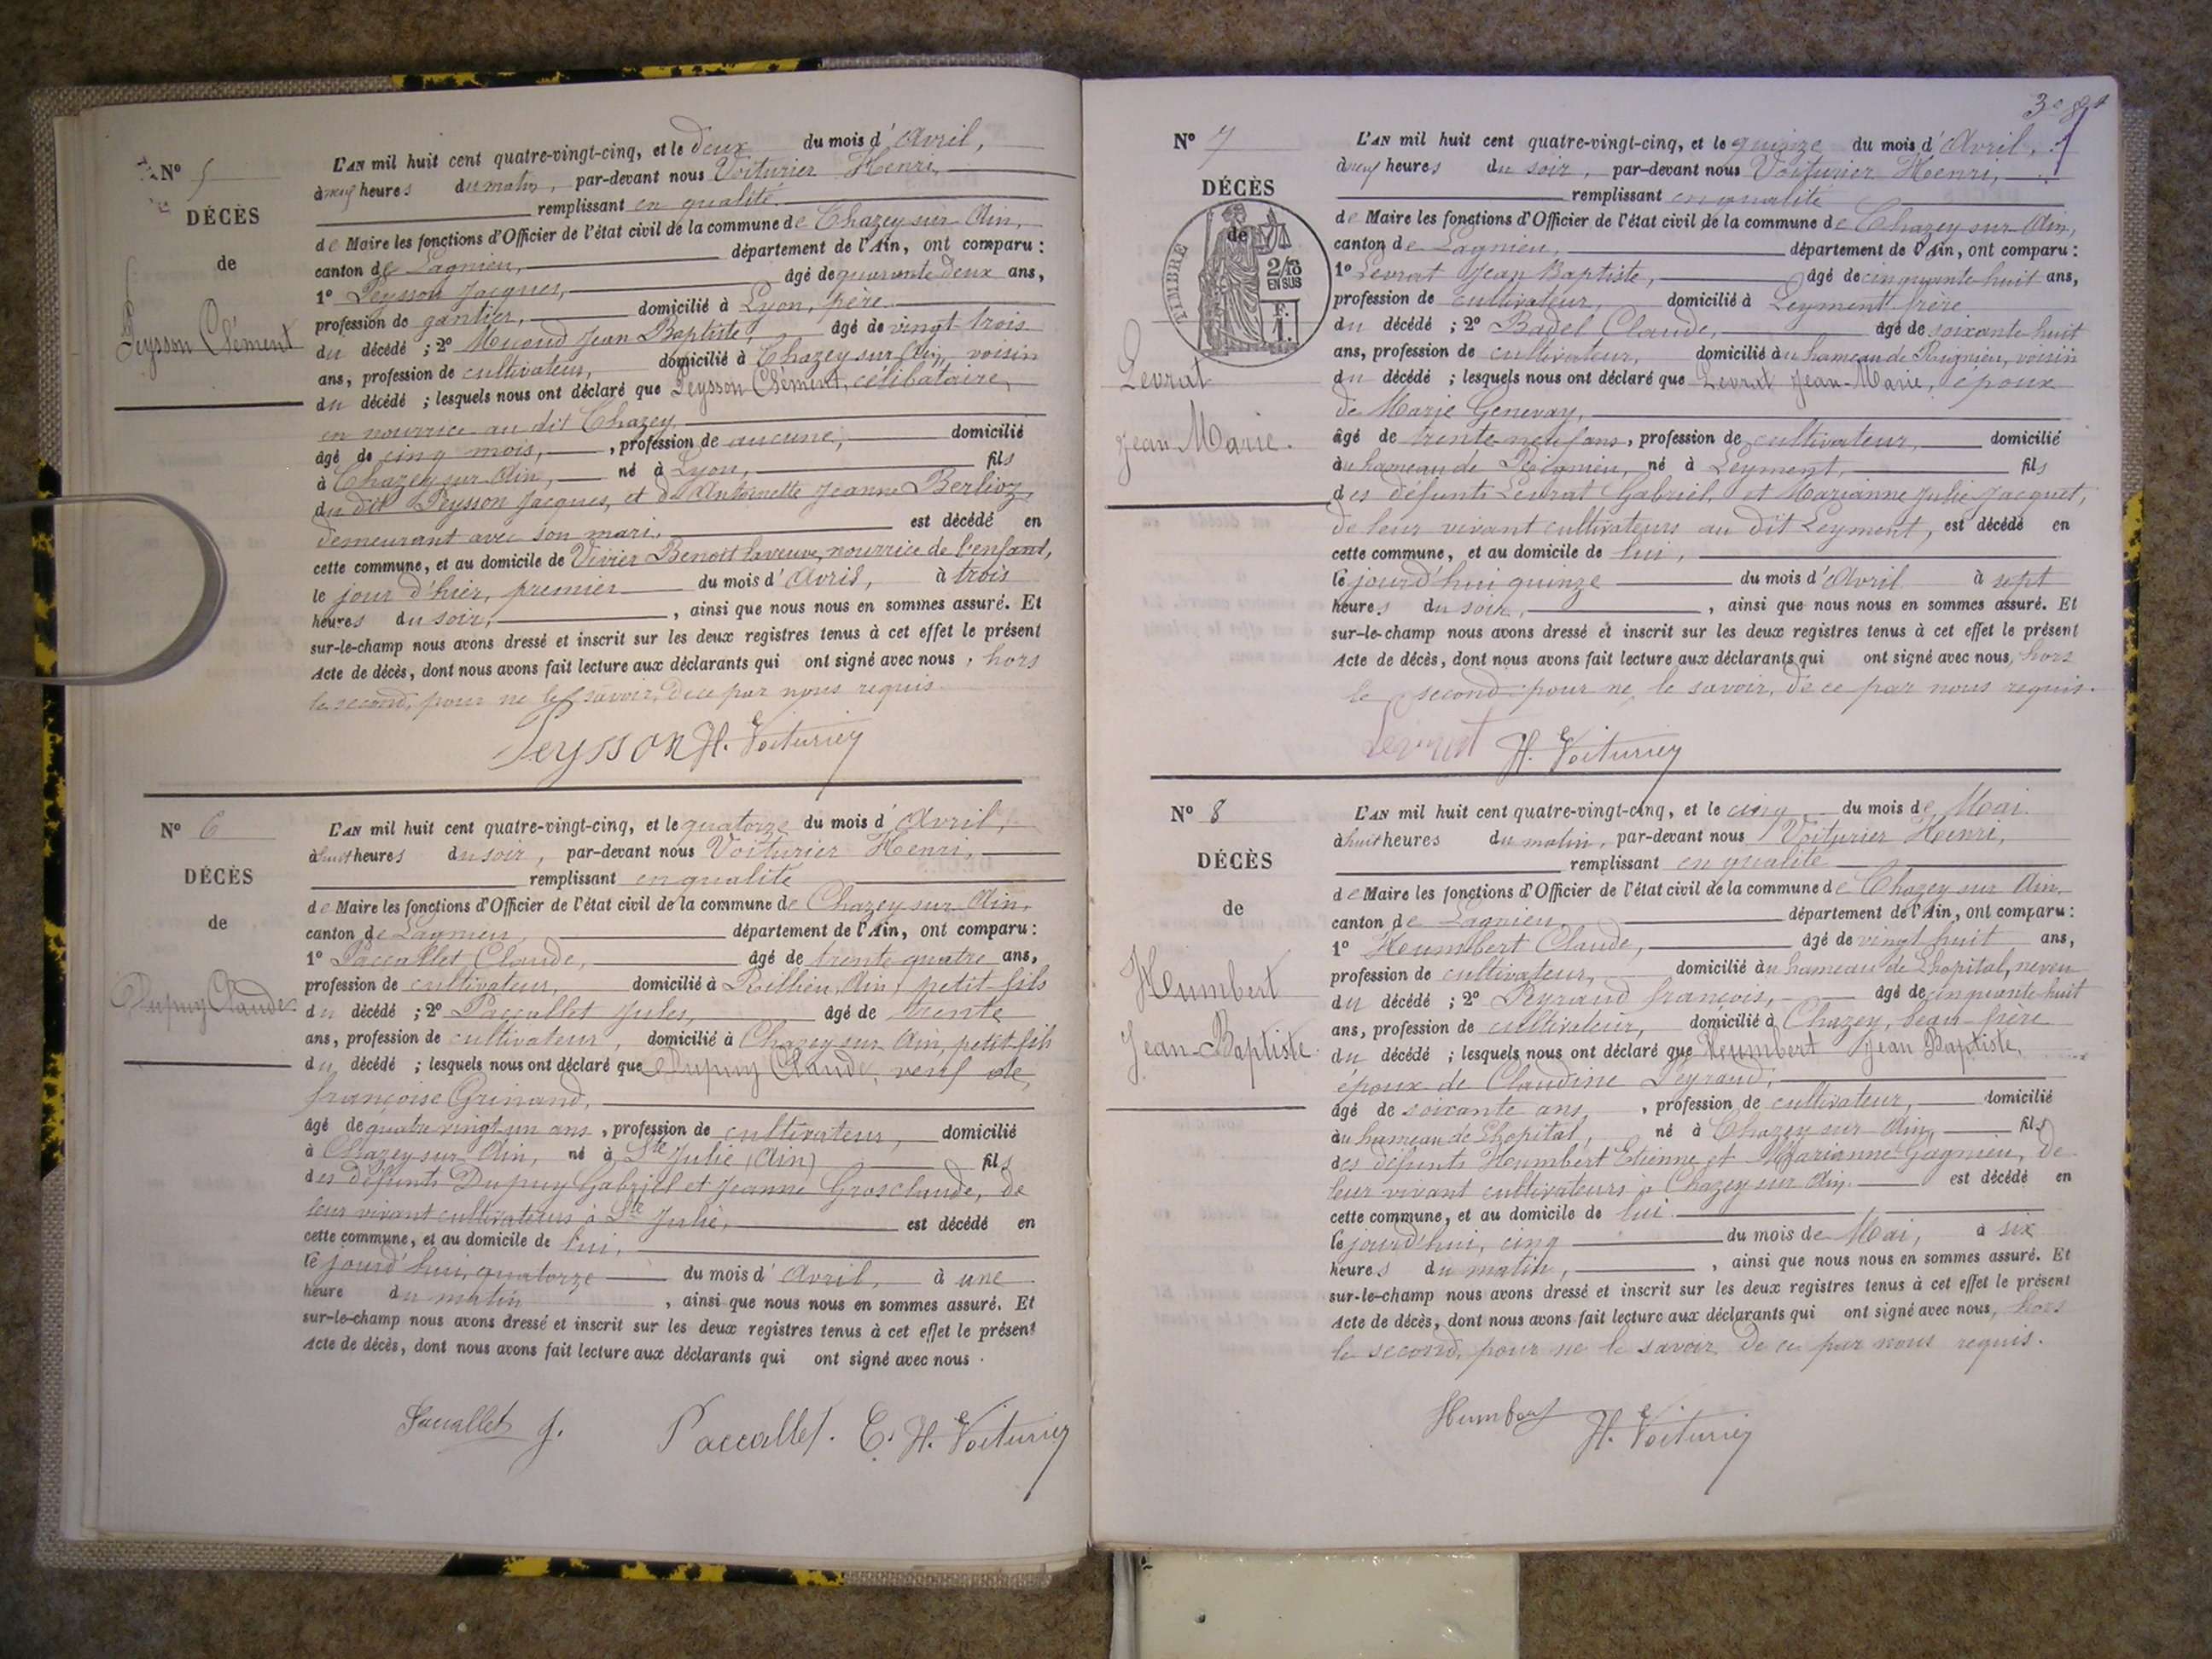 N° 5
DÉCÈS
de
Peysson Clément
L'AN mil huit cent quatre-vingt-cinq, et le deux du mois d'Avril,
à neuf heures du matin, par-devant nous Voiturier Henri,
remplissant en qualité
de Maire les fonctions d'Officier de l'état civil de la commune de Chazey sur Ain,
canton de Lagnieu, département de l'Ain, ont comparu :
1° Peysson Jacques, âgé de quarante deux ans,
profession de gantier, domicilié à Lyon, père
du décédé ; 2° Jean Baptiste, âgé de vingt-trois
ans, profession de cultivateur, domicilié à Chazey sur Ain, voisin
du décédé ; lesquels nous ont déclaré que Peysson Clément, célibataire,
en nourrice au dit Chazey
âgé de cinq mois, , profession de aucune, domicilié
à Chazey sur Ain, né à Lyon, fils
du dit Peysson Jacques, et d'Antoinette Jeanne Berlioz,
demeurant avec son mari, est décédé en
cette commune, et au domicile de Vivier Benoit la veuve, nourrice de l'enfant,
le jour d'hier, premier du mois d'Avril, à trois
heures du soir, , ainsi que nous nous en sommes assuré. Et
sur-le-champ nous avons dressé et inscrit sur les deux registres tenus à cet effet le présent
Acte de décès, dont nous avons fait lecture aux déclarants qui ont signé avec nous, hors
le second, pour ne le savoir, de ce par nous requis.
Peysson H. Voiturier
N° 6
DÉCÈS
de
Dupuy Claude
L'AN mil huit cent quatre-vingt-cinq, et le quatorze du mois d'Avril,
à huit heures du soir, par-devant nous Voiturier Henri,
remplissant en qualité
de Maire les fonctions d'Officier de l'état civil de la commune de Chazey sur Ain,
canton de Lagnieu, département de l'Ain, ont comparu :
1° Paccallet Claude, âgé de trente quatre ans,
profession de cultivateur, domicilié à Rillieu, Ain, petit-fils
du décédé ; 2° Paccallet Jules, âgé de trente
ans, profession de cultivateur, domicilié à Chazey sur Ain, petit-fils
du décédé ; lesquels nous ont déclaré que Dupuy Claude, veuf de
françoise Grinand,
âgé de quatre vingt un ans, profession de cultivateur, domicilié
à Chazey sur Ain, né à Ste Julie (Ain) fils
des défunts Dupuy Gabriel et Jeanne Grosclaude, de
leur vivant cultivateurs à Ste Julie, est décédé en
cette commune, et au domicile de lui,
le jourd'hui, quatorze du mois d'Avril, à une
heure du matin , ainsi que nous nous en sommes assuré. Et
sur-le-champ nous avons dressé et inscrit sur les deux registres tenus à cet effet le présent
Acte de décès, dont nous avons fait lecture aux déclarants qui ont signé avec nous.
Paccallet J. Paccallet. C. H. Voiturier
N° 7
DÉCÈS
de
TIMBRE
2/10 EN SUS
F. 1.
Levrat
Jean Marie.
L'AN mil huit cent quatre-vingt-cinq, et le quinze du mois d'Avril,
à neuf heures du soir, par-devant nous Voiturier Henri,
remplissant en qualité
de Maire les fonctions d'Officier de l'état civil de la commune de Chazey sur Ain,
canton de Lagnieu, département de l'Ain, ont comparu :
1° Levrat Jean Baptiste, âgé de cinquante huit ans,
profession de cultivateur, domicilié à Leyment frère
du décédé ; 2° Badel Claude, âgé de soixante huit
ans, profession de cultivateur, domicilié au hameau de voisin
du décédé ; lesquels nous ont déclaré que Levrat Jean-Marie, époux
de Marie Genevay,
âgé de trente neuf ans, profession de cultivateur, domicilié
au hameau de né à Leyment, fils
des défunts Levrat Gabriel et Marianne Julie Jacquet,
de leur vivant cultivateurs au dit Leyment, est décédé en
cette commune, et au domicile de lui,
le jourd'hui quinze du mois d'Avril à sept
heures du soir, , ainsi que nous nous en sommes assuré. Et
sur-le-champ nous avons dressé et inscrit sur les deux registres tenus à cet effet le présent
Acte de décès, dont nous avons fait lecture aux déclarants qui ont signé avec nous, hors
le second pour ne le savoir, de ce par nous requis.
Levrat H. Voiturier
N° 8
DÉCÈS
de
Humbert
Jean-Baptiste.
L'AN mil huit cent quatre-vingt-cinq, et le cinq du mois de Mai
à huit heures du matin, par-devant nous Voiturier Henri,
remplissant en qualité
de Maire les fonctions d'Officier de l'état civil de la commune de Chazey sur Ain,
canton de Lagnieu, département de l'Ain, ont comparu :
1° Humbert Claude, âgé de vingt huit ans,
profession de cultivateur, domicilié au hameau de Lhopital, neveu
du décédé ; 2° Peyraud françois, âgé de cinquante huit
ans, profession de cultivateur, domicilié à Chazey, beau-frère
du décédé ; lesquels nous ont déclaré que Humbert Jean Baptiste,
époux de Claudine Peyraud,
âgé de soixante ans, , profession de cultivateur, domicilié
au hameau de Lhopital, né à Chazey sur Ain, fils
des défunts Humbert Etienne et Marianne Gagnieu, de
leur vivant cultivateurs à Chazey sur Ain. est décédé en
cette commune, et au domicile de lui
le jourd'hui, cinq du mois de Mai, à six
heures du matin, , ainsi que nous nous en sommes assuré. Et
sur-le-champ nous avons dressé et inscrit sur les deux registres tenus à cet effet le présent
Acte de décès, dont nous avons fait lecture aux déclarants qui ont signé avec nous, hors
le second, pour ne le savoir de ce par nous requis.
Humbert H. Voiturier